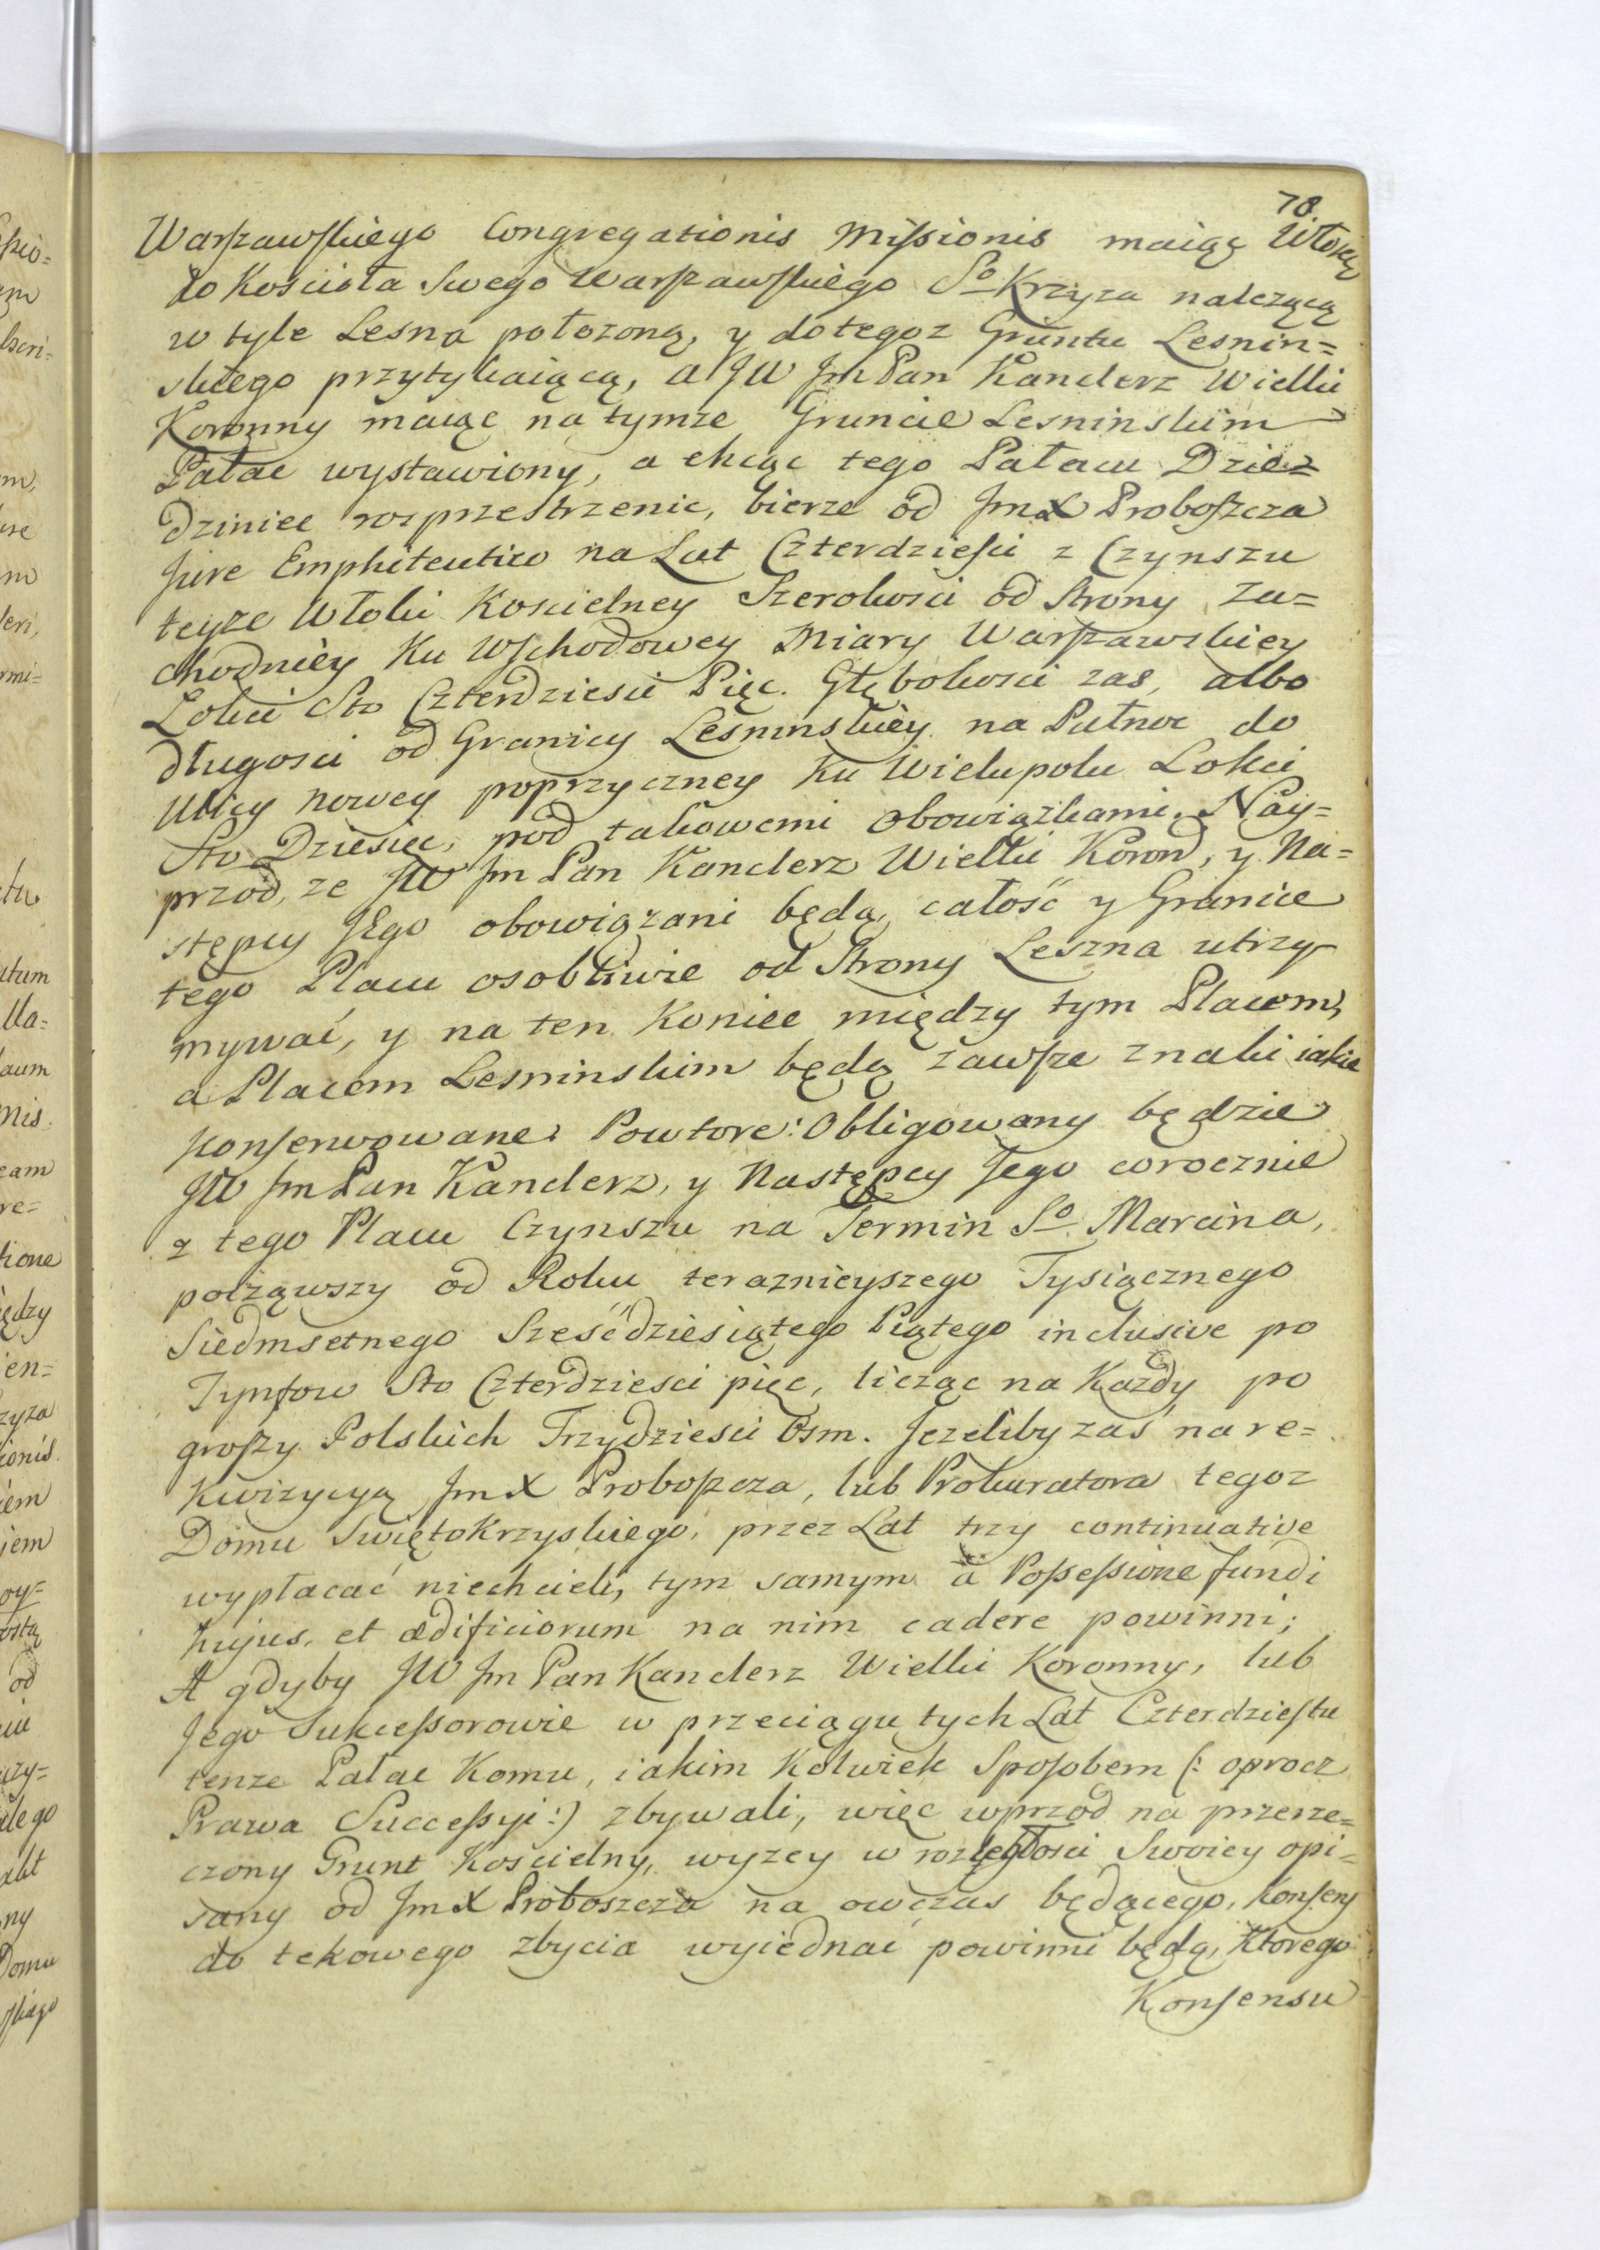 78
Warszawskiego Congregationis Missionis maiąc Włokę
do Kościoła Swego Warszawskiego So Krzyza nalezącą
w tyle Lesna połozoną, y do tegoz Gruntu Lesnin=
skiego przytykaiącą, a JW Jm Pan Kanclerz Wielki
Koronny maiąc na tymze Gruncie Lesninskim
Pałac wystawiony, a chcąc tego Pałacu Dzie=
dziniec rozprzestrzenic, bierze od JmX Proboszcza
Jure Emphiteutico na Lat Czterdziesci z Czynszu
teyze Włoki Koscielney Szerokosci od Strony Za=
chodniey Ku Wschodowey Miary Warszawskiey
Lokci Sto Czterdziesci Pięc. Głębokosci zas, albo
długosci od Granicy Lesninskiey na Pułnoc do
Ulicy nowey poprzyczney Ku Wielupolu Lokci
Sto Dziesięc, pod takowemi obowiązkami. Nay=
przod, ze JW Jm Pan Kanclerz Wielki Koron, y Na=
stępcy JEgo obowiązani będą, całość y Granice
tego Placu osobliwie od Strony Leszna utrzy
mywać, y na ten Koniec między tym Placem,
a Placem Lesninskim będą zawsze znaki iakie
konserwowane. Powtore: Obligowany będzie
JW Jm Pan Kanclerz, y Następcy Jego corocznie
z tego Placu Czynszu na Termin So Marcina,
począwszy od Roku teraznieyszego Tysiącznego
Siedmsetnego Sześćdziesiątego Piątego inclusive po
Tynfow Sto Czterdziesci pięc, licząc na Kazdy po
groszy Polskich Trzydziesci Osm. Jezeliby zaś na re=
kwizycyą JmX Proboszcza, lub Prokuratora tegoz
Domu Swiętokrzyskiego, przez Lat trzy continuative
wypłacać niechcieli, tym samym à Possessione fundi
hujus, et ædificiorum na nim cadere powinni;
A gdyby JW Jm Pan Kanclerz Wielki Koronny, lub
Jego Sukcessorowie w przeciągu tych Lat Czterdziestu
tenze Pałac Komu, iakim Kolwiek Sposobem (: oprocz
Prawa Successyi :) zbywali, więc wprzod na przerze=
czony Grunt Kościelny, wyzey w rozległosci Swoiey opi=
sany od JmX Proboszcza na owczas będącego, Konsens
do tekowego zbycia wyiednać powinni będą, Ktorego
Konsensu